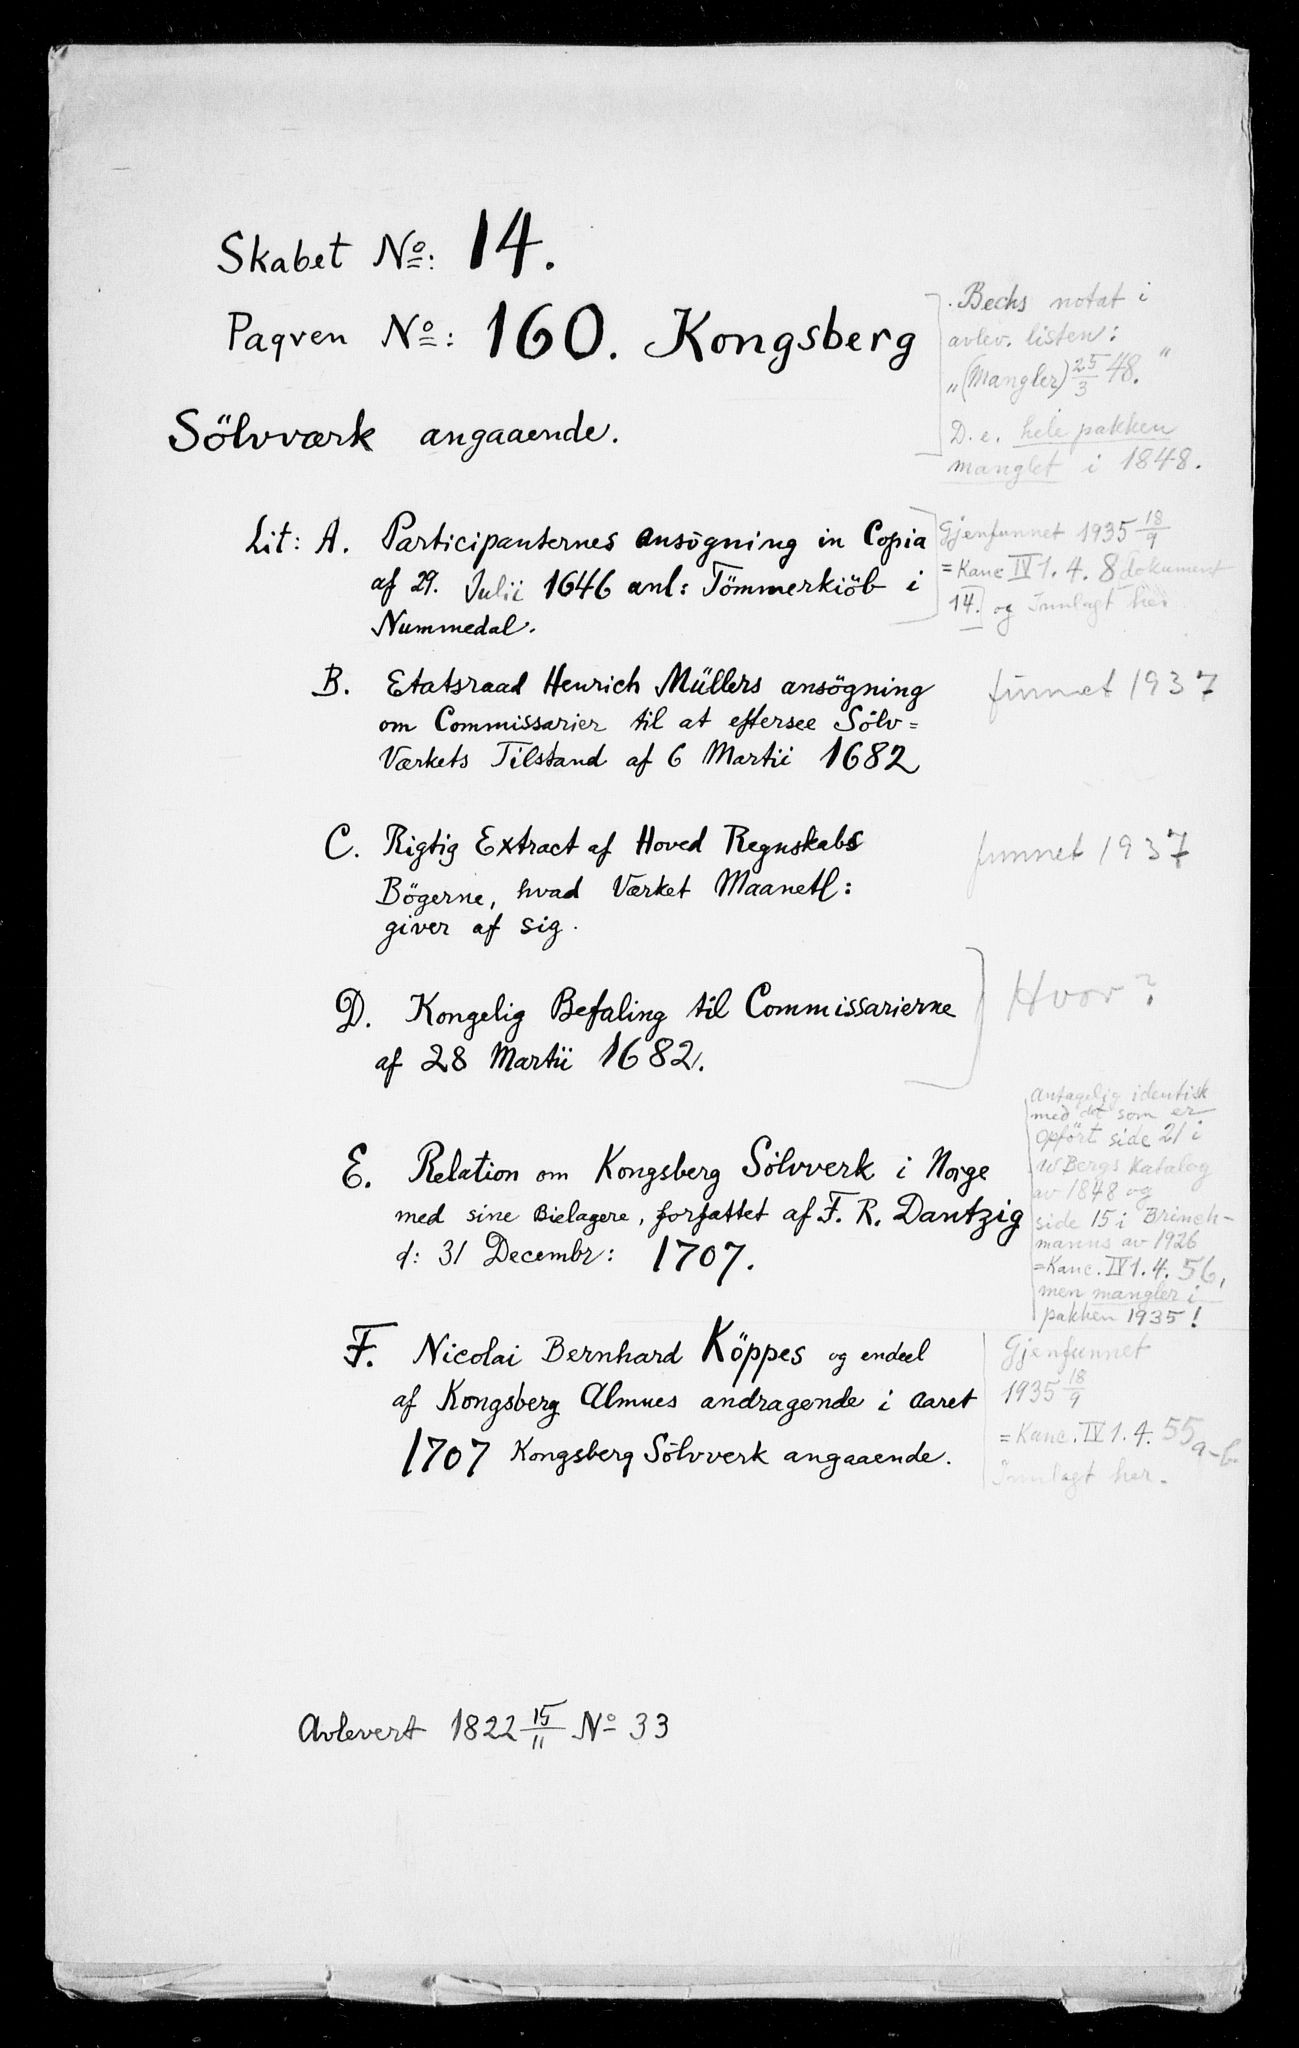 Skabet No: 14.
Paqven No: 160. Kongsberg
Sölvværk angaaende.
. Bechs notat i
avlev. listen:
„(Mangler) 25/3 48.“
D. e. hele pakken
manglet i 1848.
Lit: A. Participanternes ansögning in Copia
af 29. Julii 1646 anl: Tömmerkiöb i
Nummedal.
Gjenfunnet 1935 18/9
= Kanc IV 1. 4. 8 dokument
14. og Innlagt her
B. Etatsraad Henrich Müllers ansögning
om Commissarier til at eftersee Sölv=
Værkets Tilstand af 6 Martii 1682
funnet 1937
C. Rigtig Extract af Hoved Regnskabs
Bögerne, hvad Værket Maanetl:
giver af sig.
funnet 1937
D. Kongelig Befaling til Commissarierne
af 28 Martii 1682.
Hvor?
E. Relation om Kongsberg Sölvverk i Norge
med sine Bielagere, forfattet af F. R. Dantzig
d: 31 Decembr: 1707.
antagelig identisk
med det som er
opfört side 21 i
Bergs katalog
av 1848 og
side 15 i Brinch-
manns av 1926
=Kanc. IV 1. 4. 56,
men mangler i
pakken 1935!
F. Nicolai Bernhard Köppes og endeel
af Kongsberg Almues andragende i aaret
1707 Kongsberg Sölvverk angaaende.
Gjenfunnet
1935 18/9
= Kanc. IV 1. 4. 55 a-b.
Innlagt her.
Avlevert 1822 15/11 No 33